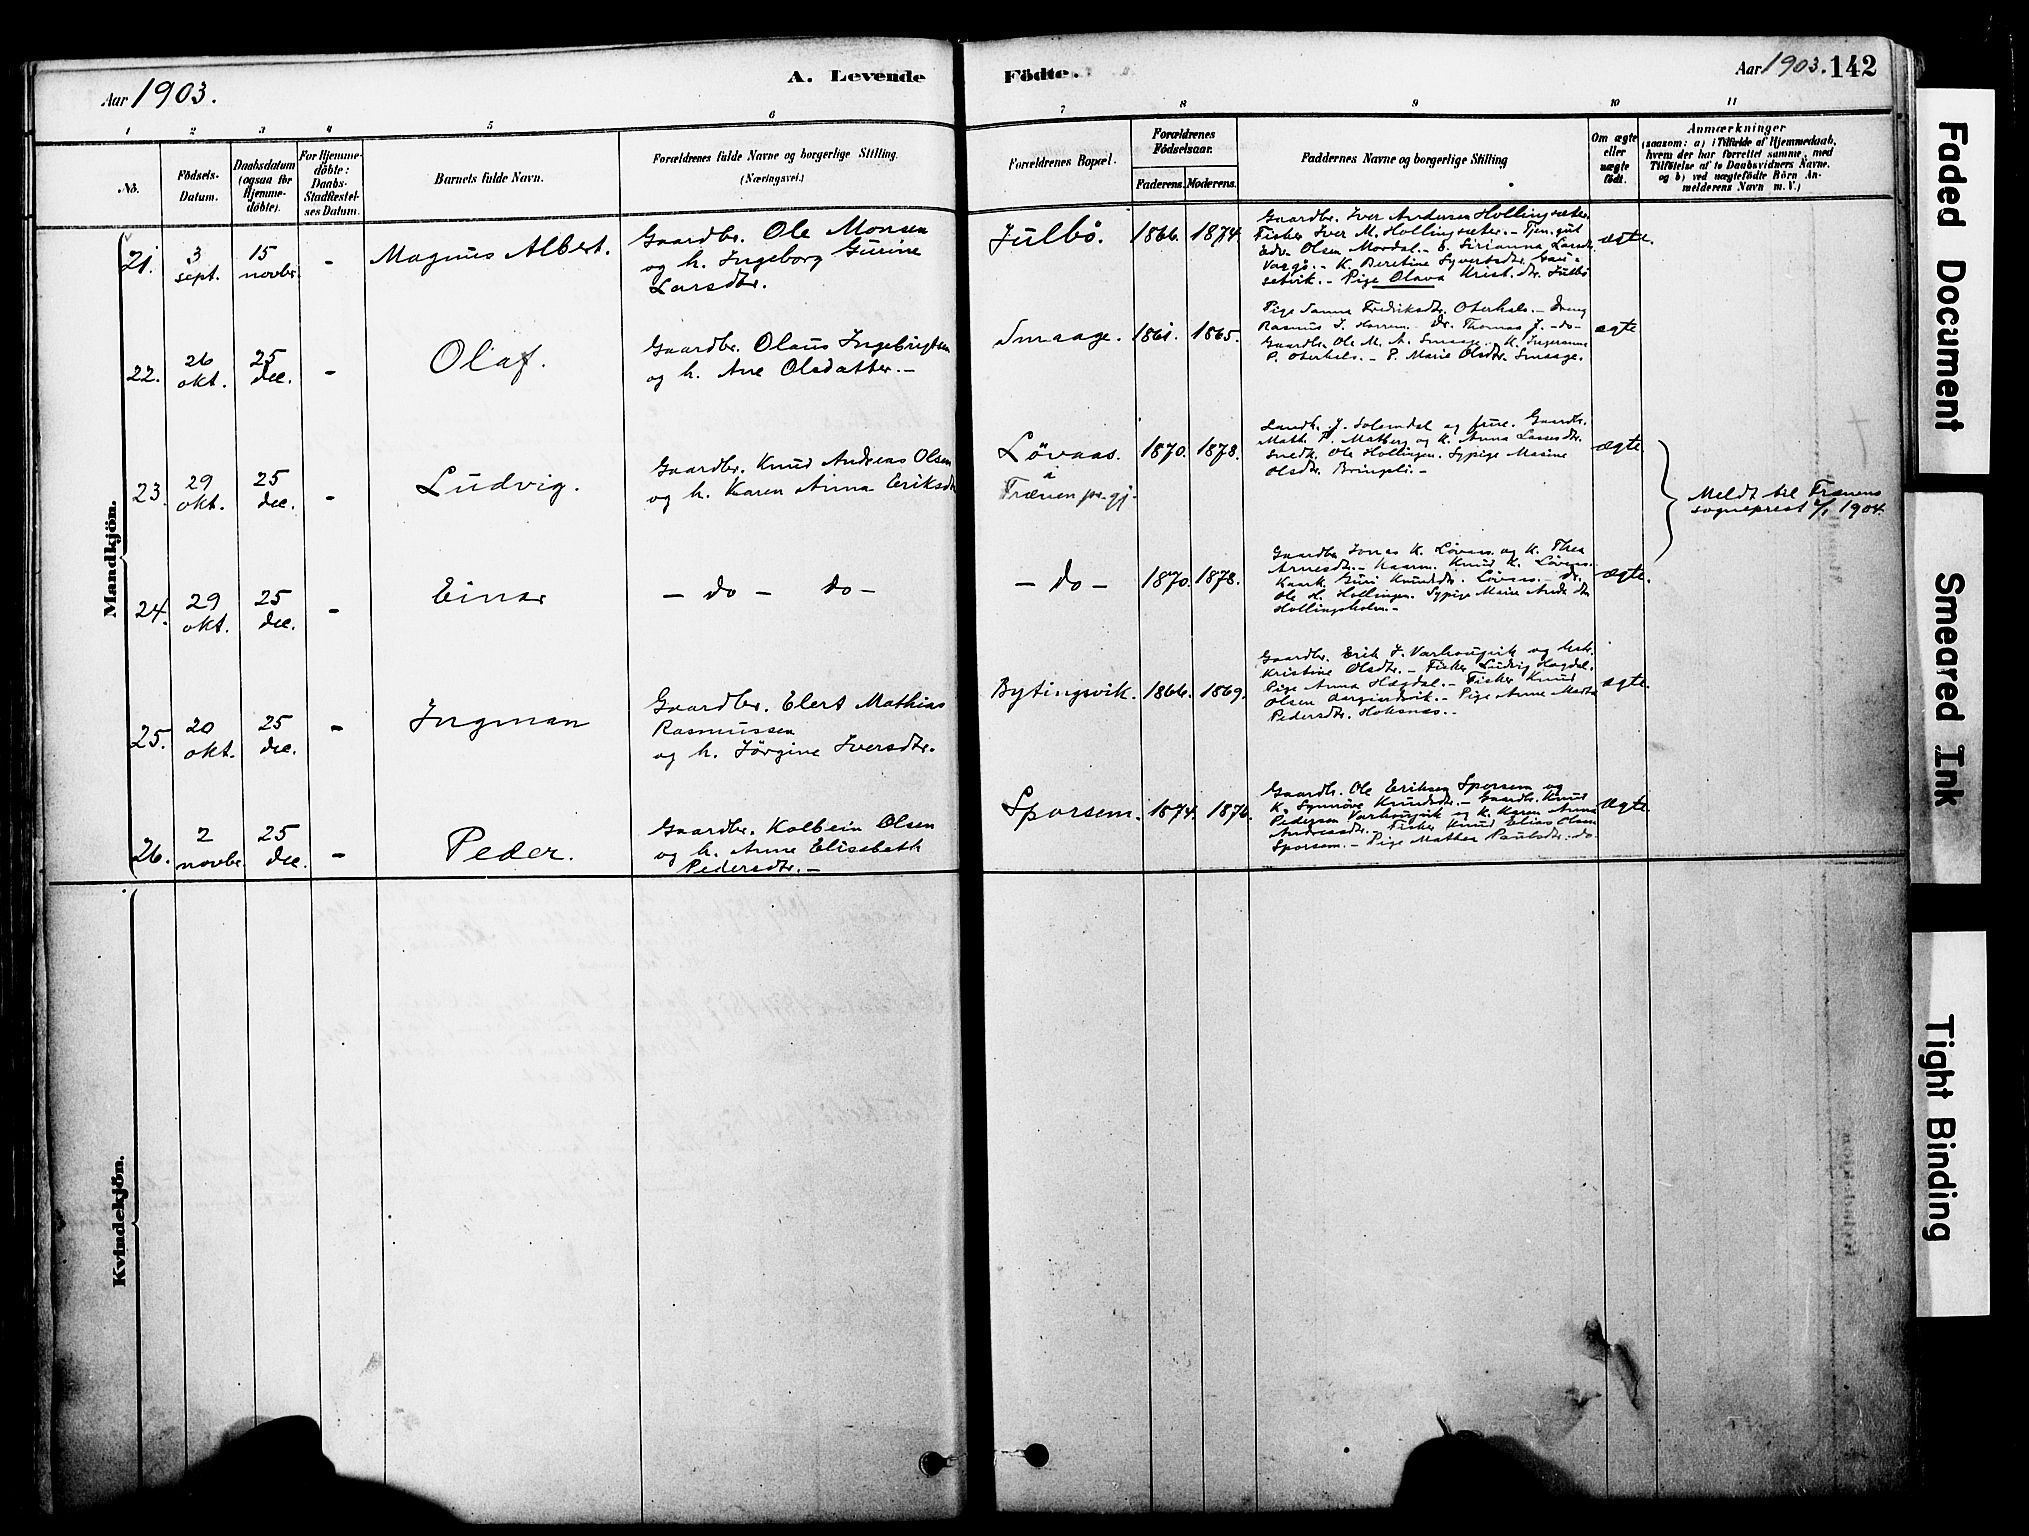 Aar 1903.
A. Levende
Födte.
Aar 1903. 142
1 2 3 4 5 6 7 8 9 10 11
No.
Födsels-
Datum.
Daabsdatum
(ogsaa for
Hjemme-
döbte).
For Hjemme-
döbte:
Daabs-
Stadfæstel-
ses Datum.
Barnets fulde Navn.
Forældrenes fulde Navne og borgerlige Stilling.
(Næringsvei.)
Forældrenes Bopæl.
Forældrenes
Födselsaar.
Faderens. Moderens.
Faddernes Navne og borgerlige Stilling
Om ægte
eller
uægte
födt.
Anmærkninger
(saasom: a) i Tilfælde af Hjemmedaab,
hvem der har forrettet samme, med
Tilföielse af to Daabsvidners Navne,
og b) ved uægtefödte Börn An-
melderens Navn m. V.)
Mandkjön.
21. 3 sept. 15 novbr. - Magnus Albert.
Gaardbr. Ole Monsen
og h. Ingeborg Gurine
Larsdtr.
Julbö. 1866. 1874.
Gaardbr. Iver Andersen Hollingsæter.
Fisker Iver M. Hollingsæter. - Tjen.gut
Edv. Olsen Mordal. - E. Sirianna Larsdtr.
Vaagö. - K. Beretine Syvertsdtr.
setvik. - Pige Olava Krist.dtr. Julbö
ægte.
22. 26 okt. 25 dec. - Olaf.
Gaardbr. Olaus Ingebrigtsen
og h. Ane Olsdatter. -
Smaage. 1861. 1865.
Pige Sanna Fredriksdtr. Oterhals. - Dreng
Rasmus J. Harrem. - Dr. Thomas J. - do -
Gaardbr. Ole M. A. Smaage. - K. Ingeranna
P. Oterhals. - P. Marie Olsdtr. Smaage.
ægte
23. 29 okt. 25 dec. - Ludvig.
Gaardbr. Knud Andreas Olsen
og h. Karen Anna Eriksdtr.
Lövaas.
i
Frænen pr.gj.
1870. 1878.
Landh. J. Solemdal og frue. Gaardbr.
Math. P. Malberg og K. Anna Lassesdtr.
Snedk. Ole Hollingen. Sypige Masine
Olsdtr. Bringsli. -
ægte.
Meldt til Frænens
sogneprest 2/1 1904.
24. 29 okt. 25 dec. - Einar
- do - do -
- do - 1870. 1878.
Gaardbr. Jonas K. Lövaas. og K. Thea
Arnesdtr. - Knud K. Lövaas.
Guri Knutsdtr. Lövaas. - Dr.
Ole H. Hollingen. Sypige
Hollingsholm. -
ægte.
25. 20 okt. 25 dec. - Ingman
Gaardbr. Elert Mathias
Rasmussen
og h. Jörgine Iversdtr.
Bytingsvik. 1866. 1869.
Gaardbr. Erik J. Varhougvik og hst.
Kristine Olsdtr. - Fisker Ludvig Hagdal.
Pige Anna Hægdal. - Fisker Knud
Olsen - Pige Anne Marta
Pedersdtr. Hoksnes. -
ægte.
26. 2 novbr. 25 dec. - Peder.
Gaardbr. Kolbein Olsen
og h. Anne Elisabeth
Pedersdtr. -
Sporsem. 1874. 1876.
Gaardbr. Ole Eriksen Sporsem og
K. Synnöve Knudsdtr. - Gaardbr. Knud
Pedersen Varhougvik og K. Karen Anna
Andreasdtr. Fisker Knud Elias Olsen
Sporsem. - Pige Mathea Paulsdtr. do.
ægte.
Kvindekjön.
Faded Document
Smeared Ink
Tight Binding